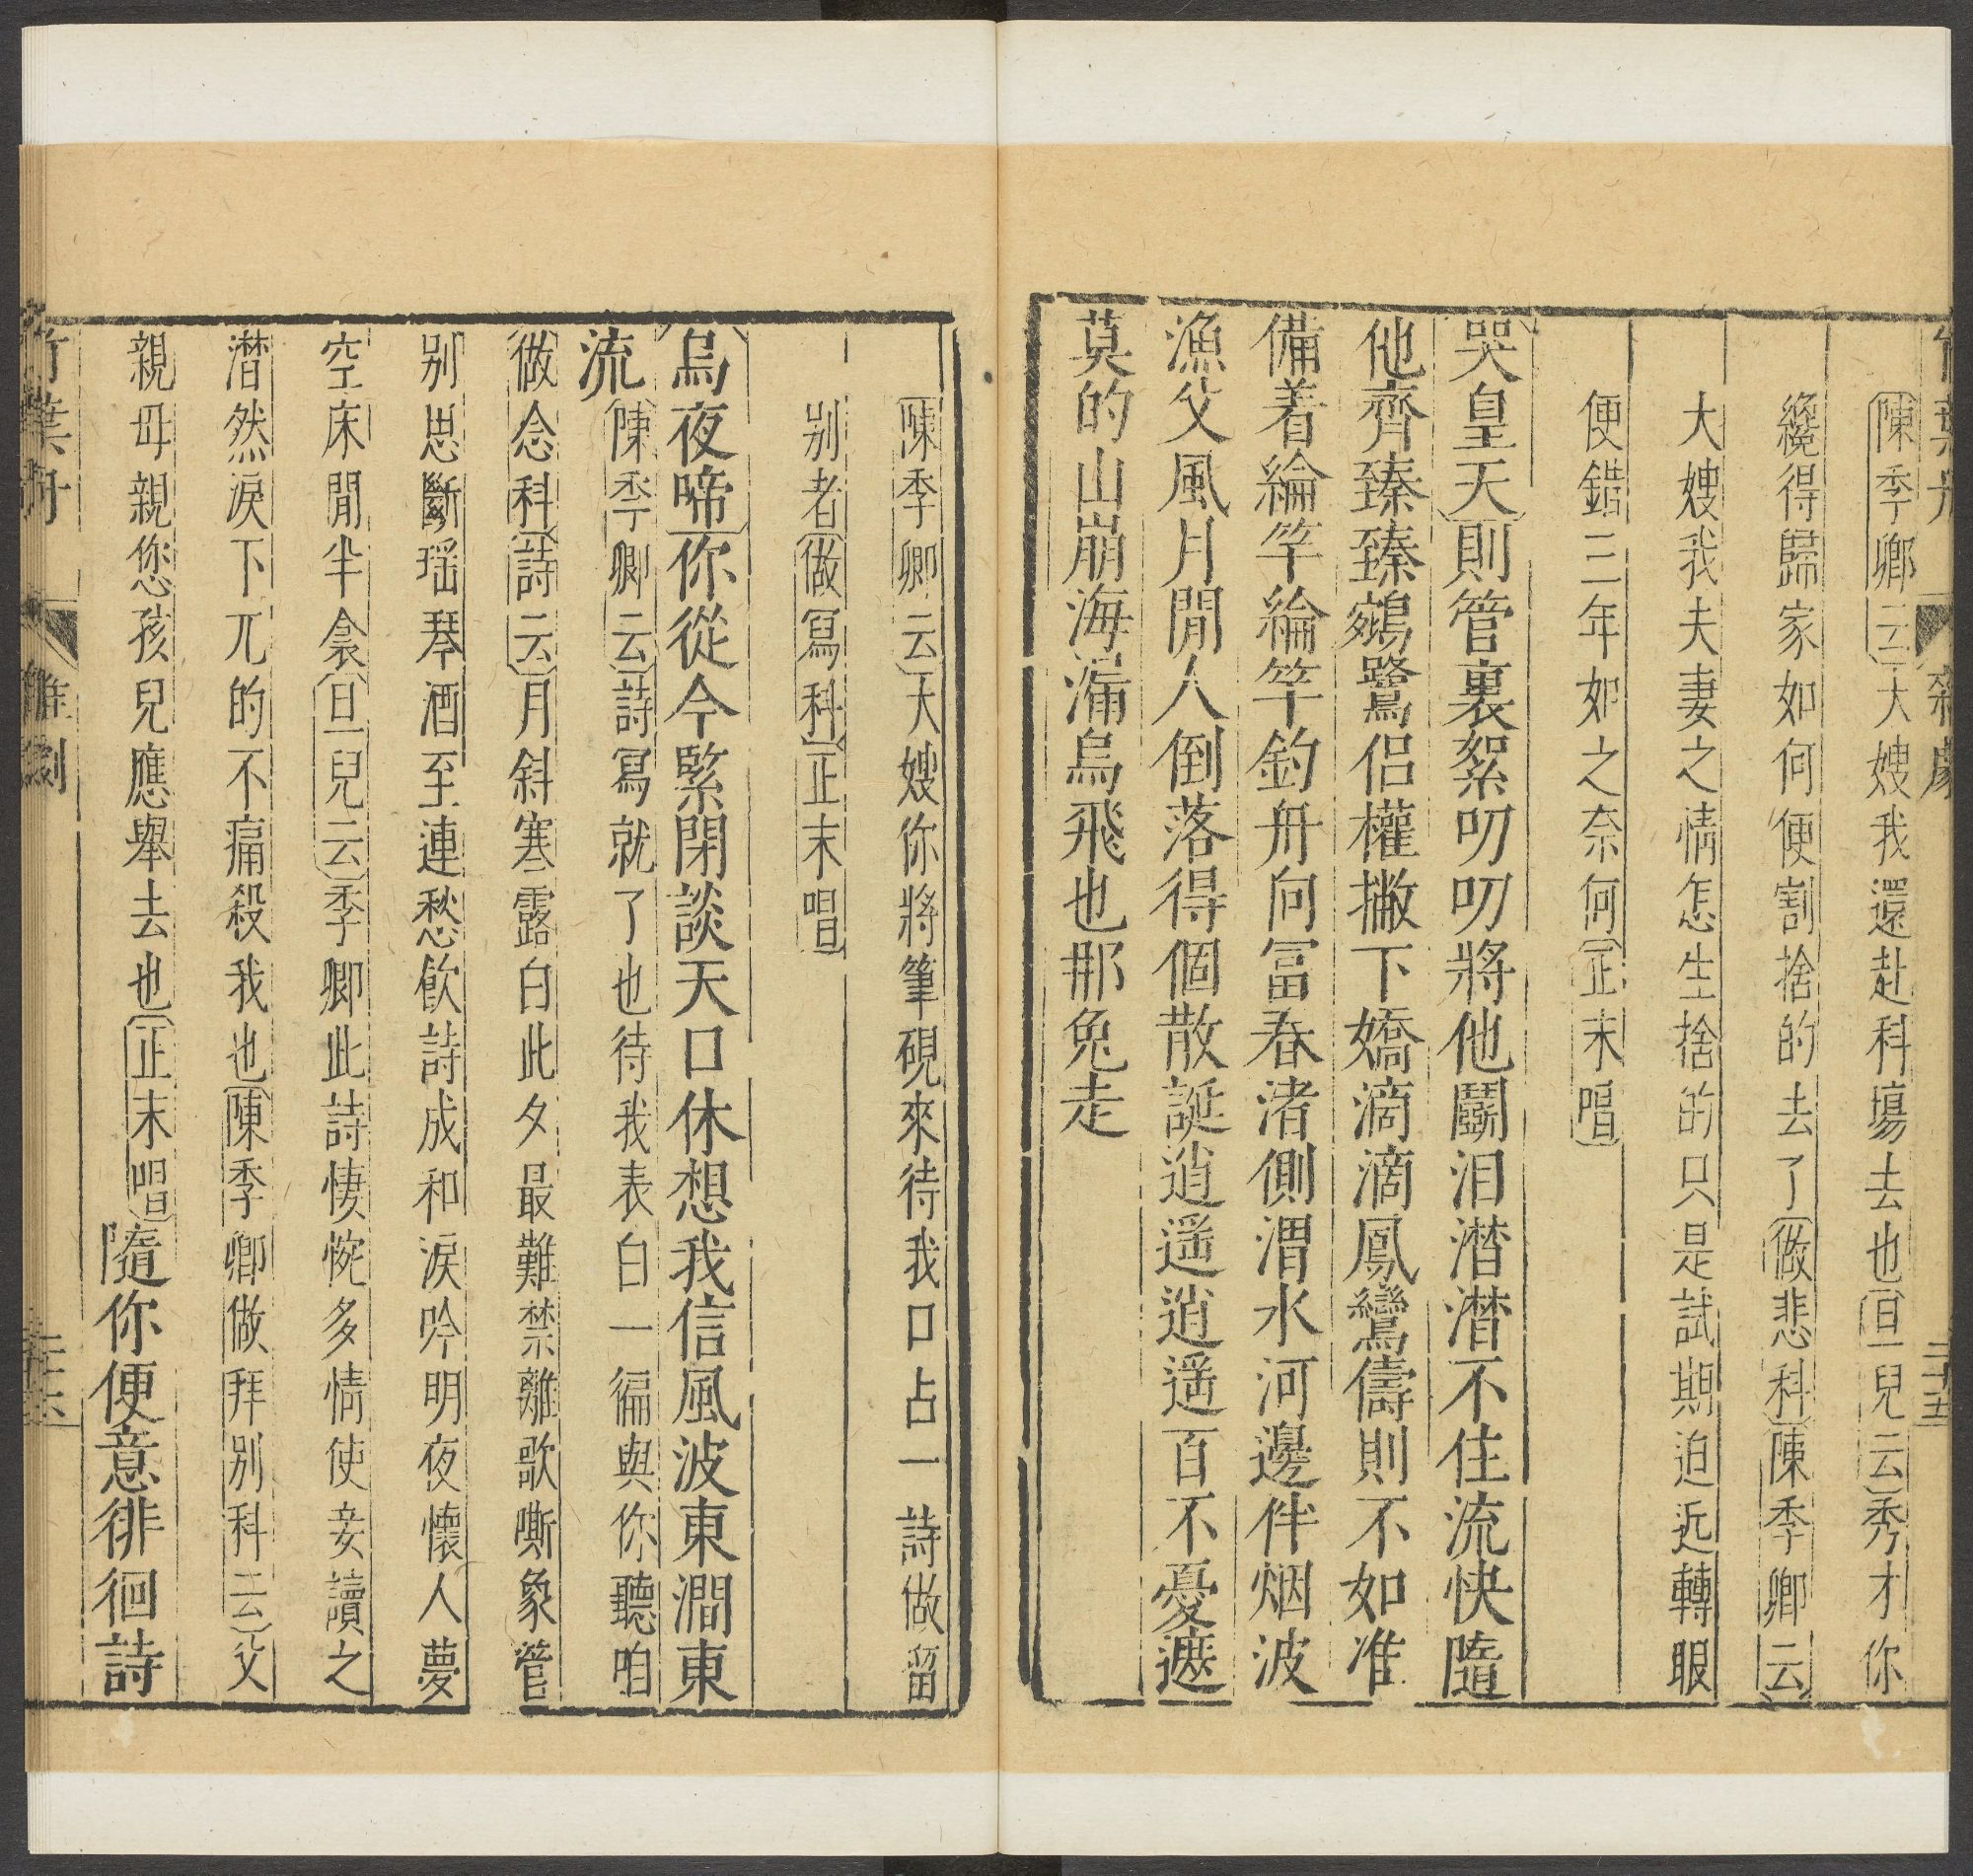 竹葉舟 雜劇 二十五
陳季卿云大嫂我還赴科塲去也旦兒云秀才你
纔得歸家如何便割捨的去了做悲科陳季卿云
大嫂我夫妻之情怎生捨的只是試期迫近轉眼
便錯三年如之奈何正末唱
哭皇天則管裏絮叨叨將他鬬泪潸潸不住流快隨
他齊臻臻鵷鷺侶權撇下嬌滴滴鳳鸞儔則不如准
備着綸竿綸竿釣舟向冨春渚側渭水河邊伴烟波
漁父風月閒人倒落得個散誕逍遥逍遥百不憂遮
莫的山崩海漏烏飛也那兔走
陳季卿云大嫂你將筆硯來待我口占一詩做留
别者做冩科正末唱
烏夜啼你從今緊閉談天口休想我信風波東澗東
流陳季卿云詩冩就了也待我表白一徧與你聽咱
做念科詩云月斜寒露白此夕最難禁離歌嘶象管
别思斷瑶琴酒至連愁飲詩成和淚吟明夜懷人夢
空床閒半衾旦兒云季卿此詩悽惋多情使妾讀之
潸然淚下兀的不痛殺我也陳季卿做拜别科云父
親母親您孩兒應舉去也正末唱隨你便意徘徊詩
竹葉舟 雜劇 二十六